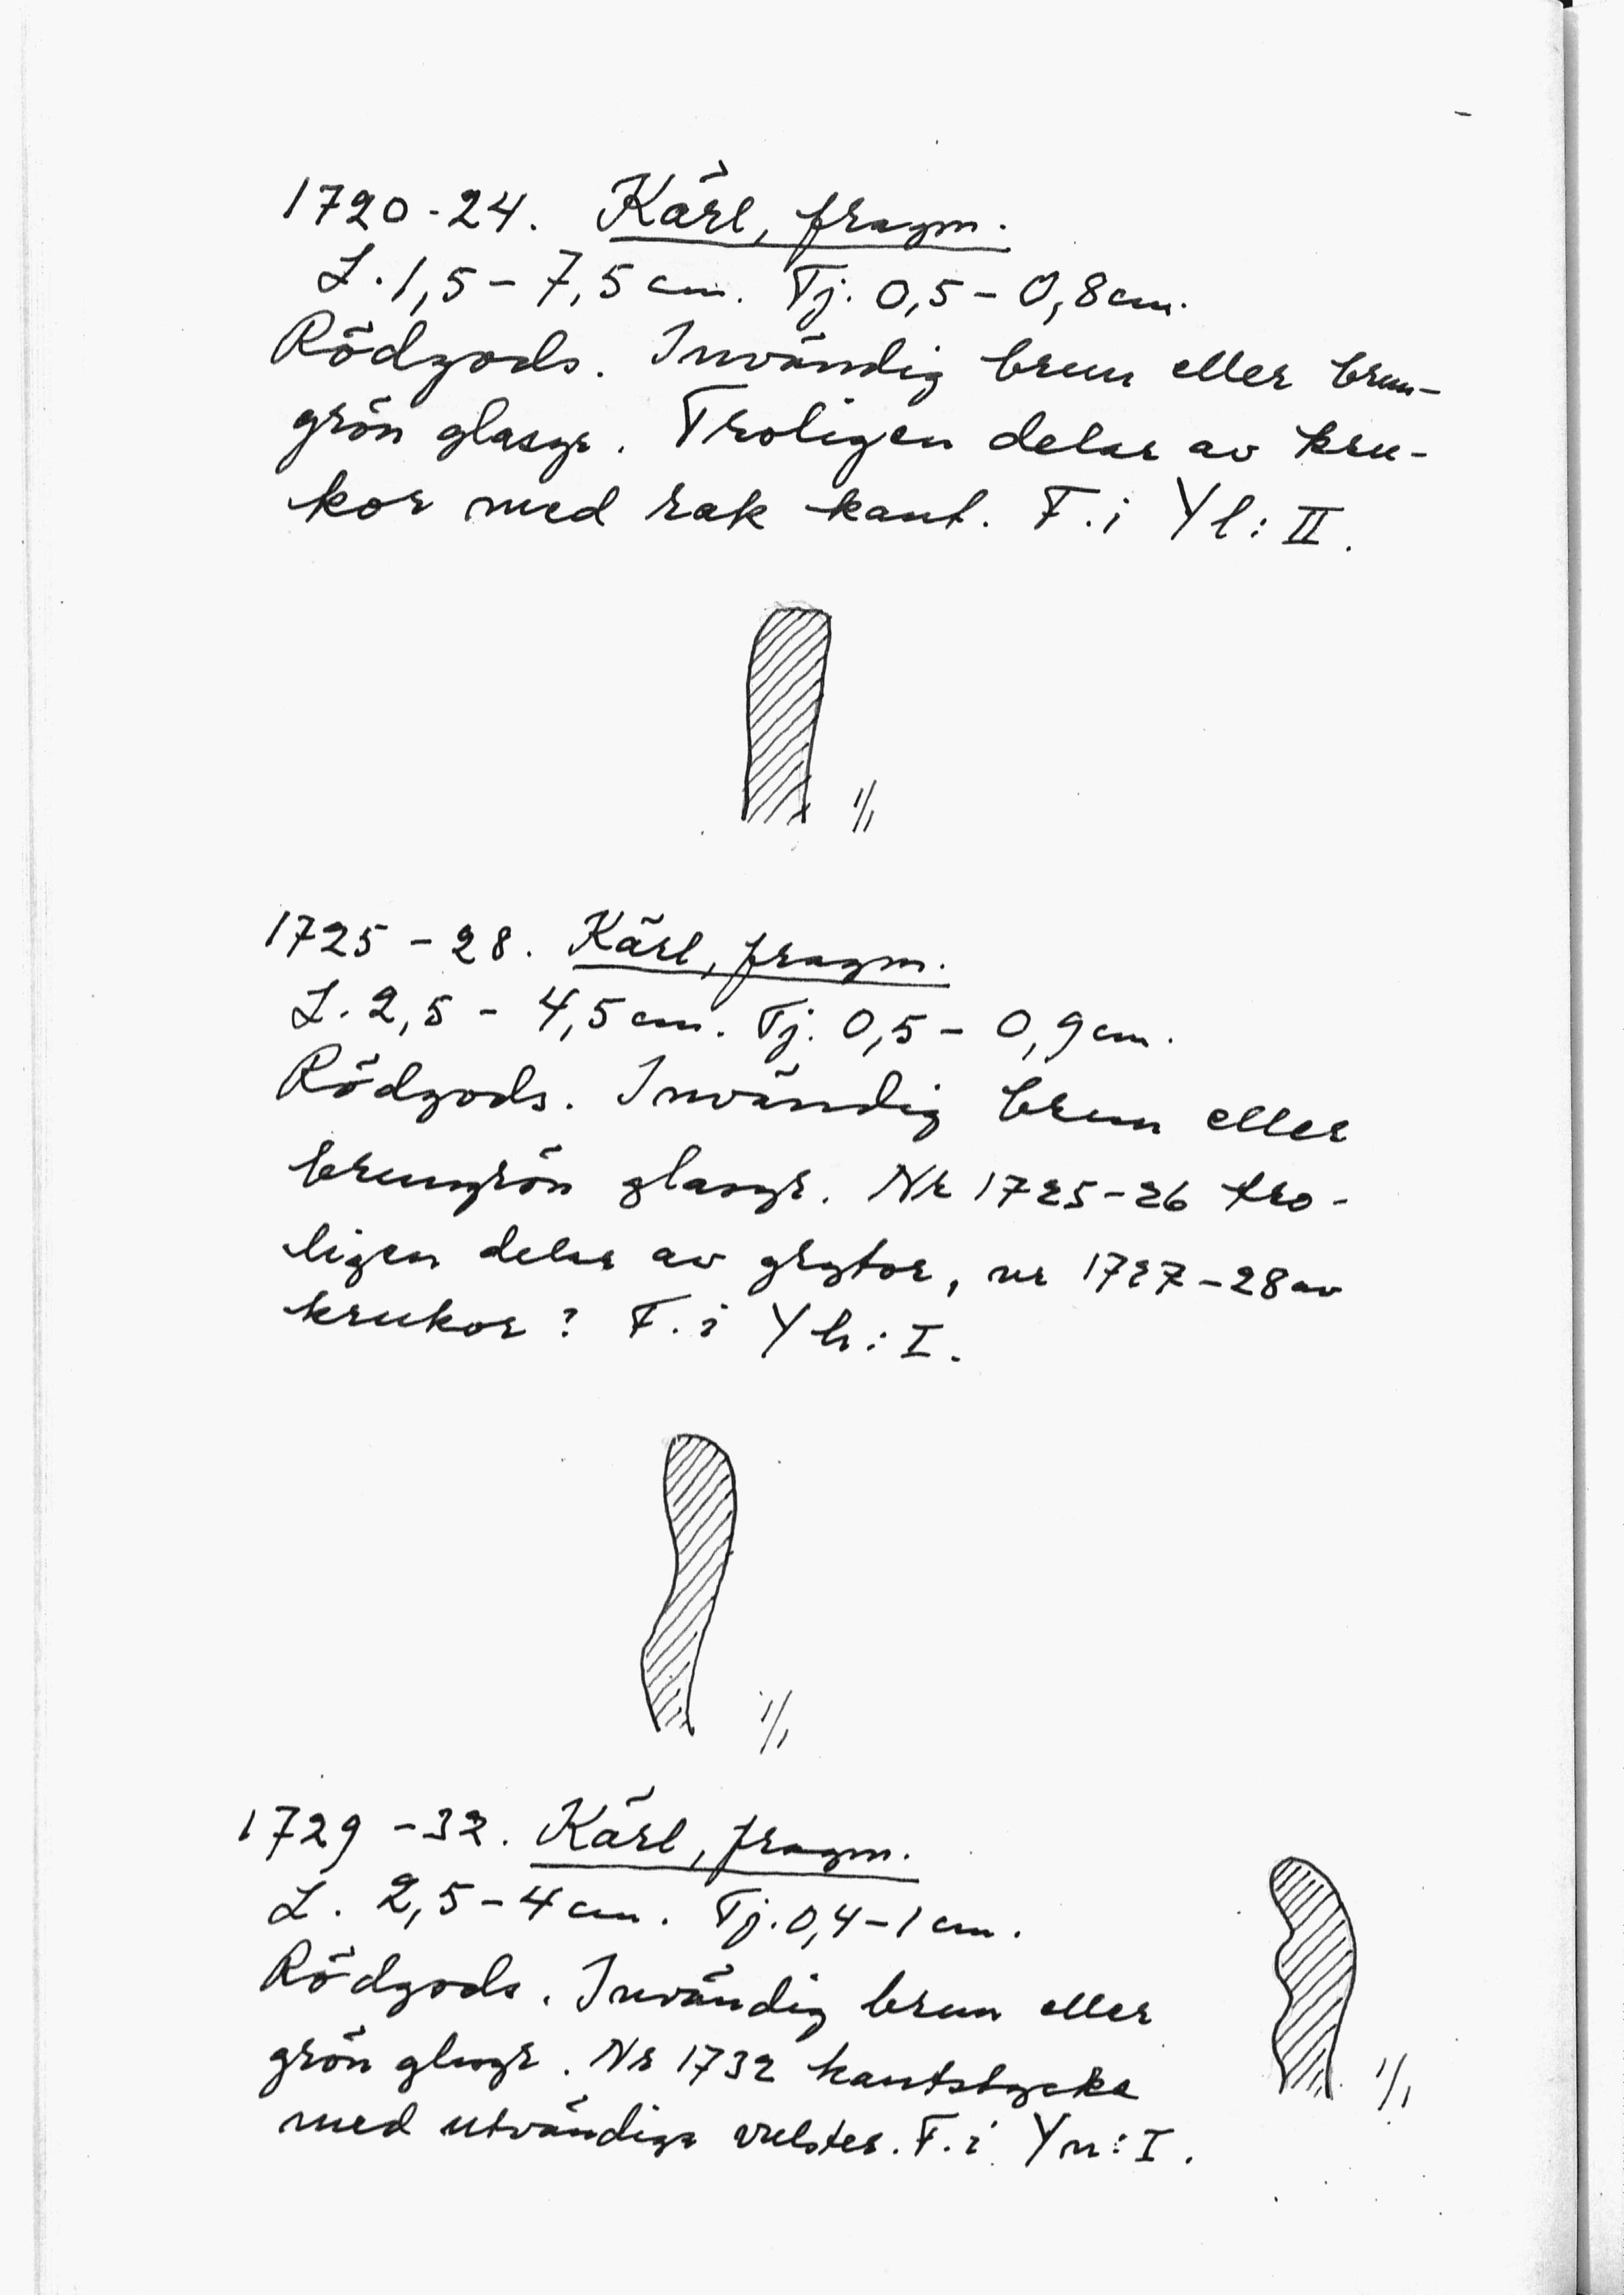 1720-24. Kärl, fragm.
L. 1,5 - 7,5 cm. Tj. 0,5 - 0,8 cm.
Rödgods. Invändig brun eller brun-
grön glasyr. Troligen delar av kru-
kor med rak kant. F. i Yl: II.
1/1
1725 - 28. Kärl, fragm.
L. 2,5 - 4,5 cm. Tj. 0,5 - 0,9 cm.
Rödgods. Invändig brun eller
brungrön glasyr. Nr 1725-26 tro-
ligen delar av grytor, nr 1727-28 av
krukor? F. i Yh: I.
1/1
1729 - 32. Kärl, fragm.
L. 2,5 - 4 cm. Tj. 0,4 - 1 cm.
Rödgods. Invändig brun eller
grön glasyr. Nr 1732 kantstycke
med utvändiga vulster. F. i Yn: I.
1/1